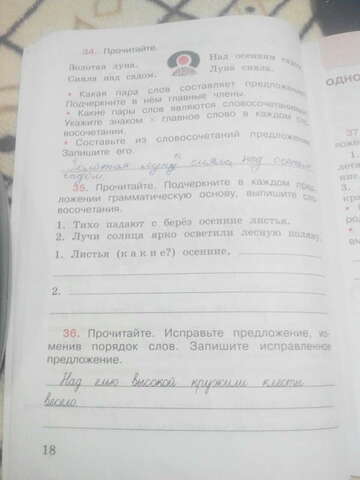 34. Прочитайте.
Золотая луна. Над осенним садом.
Сияла над садом. Луна сияла.
• Какая пара слов составляет предложение?
Подчеркните в нём главные члены.
• Какие пары слов являются словосочетаниями?
Укажите знаком × главное слово в каждом сло-
восочетании.
• Составьте из словосочетаний предложение.
Запишите его.
Золотая луна сияла над осенним
садом.
35. Прочитайте. Подчеркните в каждом пред-
ложении грамматическую основу, выпишите сло-
восочетания.
1. Тихо падают с берёз осенние листья.
2. Лучи солнца ярко осветили лесную поляну.
1. Листья (какие?) осенние,
2.
36. Прочитайте. Исправьте предложение, из-
менив порядок слов. Запишите исправленное
предложение.
Над елью высокой кружили клесты
весело.
18
ОДНО
37